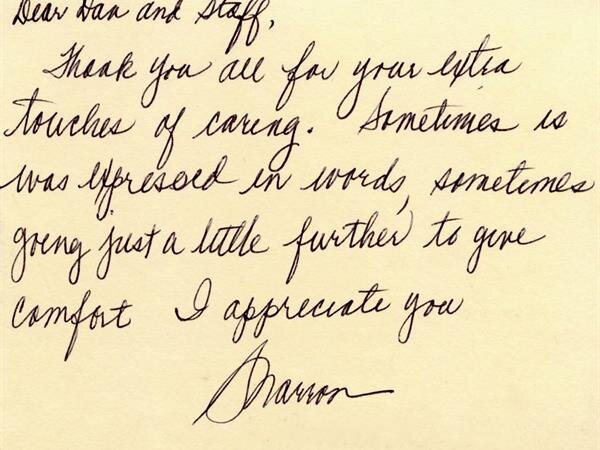 Dear Dan and Staff,
Thank you all for your extra
touches of caring. Sometimes is
was expressed in words, sometimes
going just a little further to give
comfort I appreciate you
Sharron